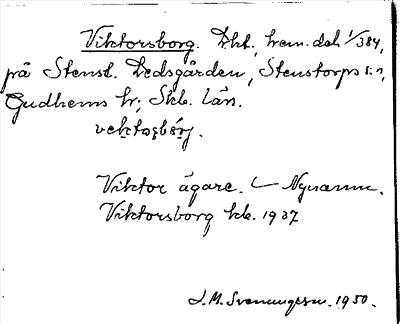 Viktorsborg. Dht, hem.del 1/384,
på Stensl. Dedsgården, Stenstorps s:n,
Gudhems hr; Skb. län.
Viktor ägare. — Nynamn.
Viktorsborg kbr. 1937
J.M. Svenungsson. 1950.